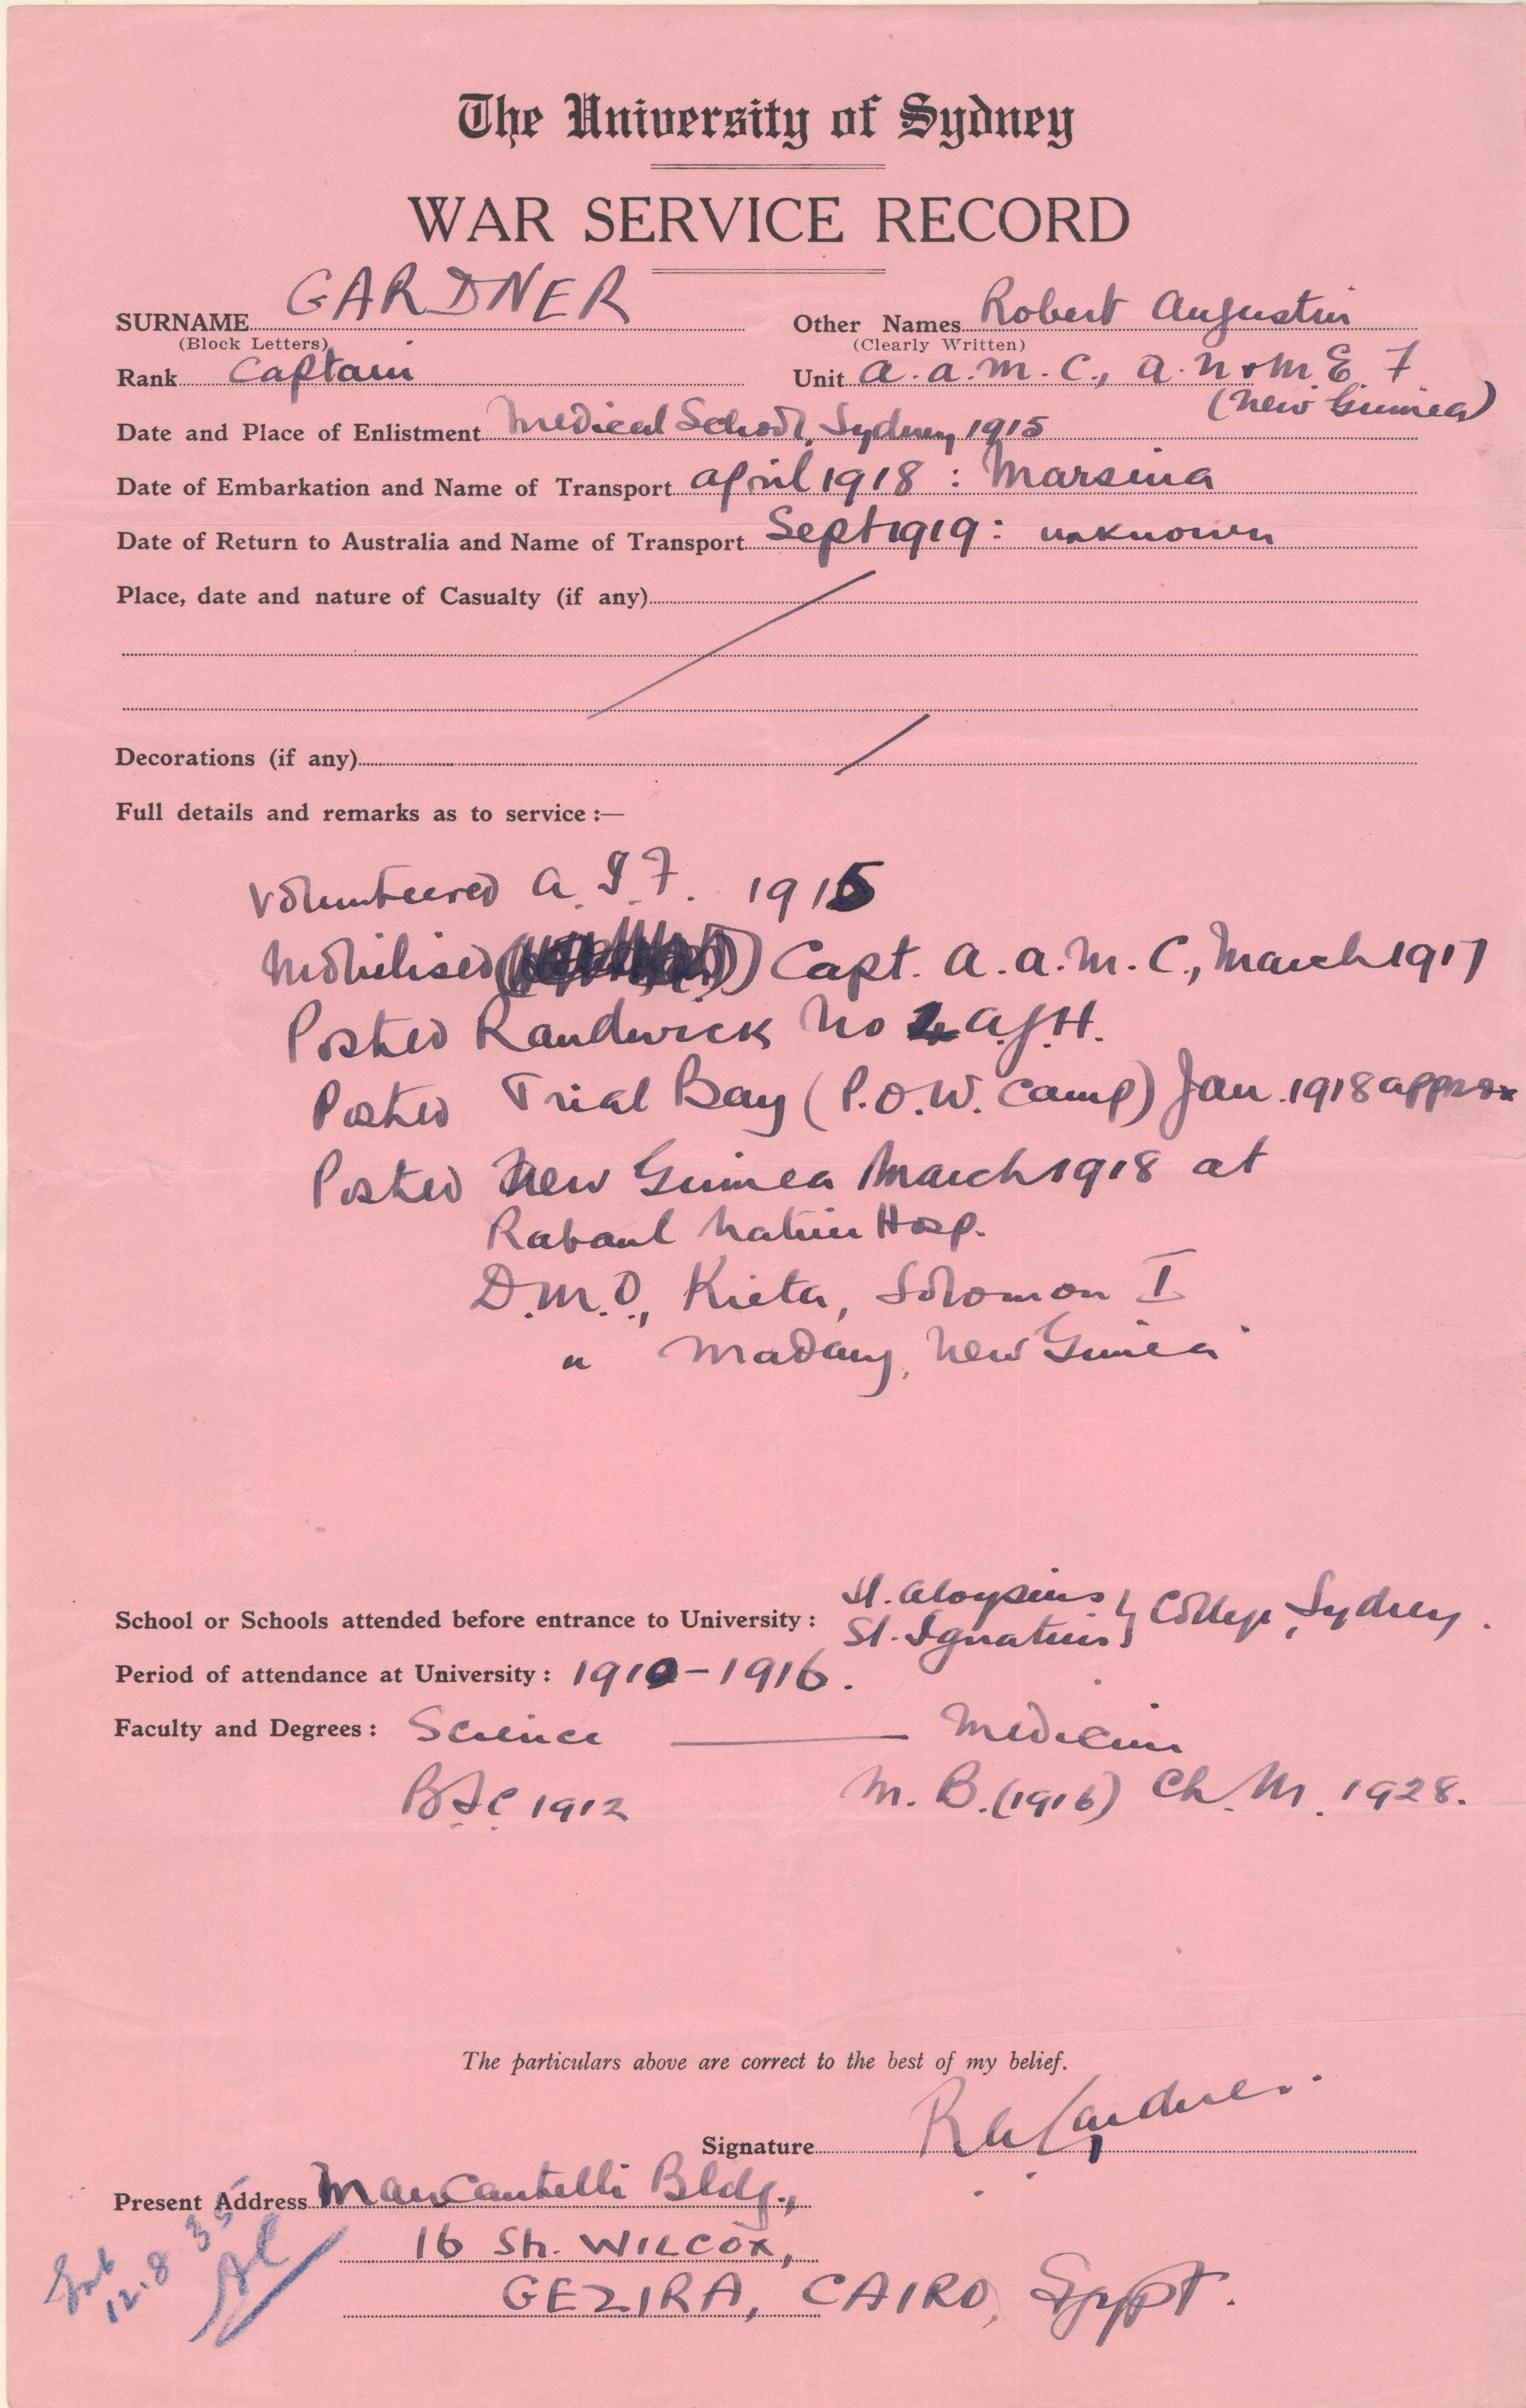 The University of Sydney
WAR SERVICE RECORD
SURNAME GARDNER Other Names Robert Augustin
(Block Letters) (Clearly Written)
Rank Captain Unit A.A.M.C., A.N & M E F
(New Guinea)
Date and Place of Enlistment Medical School, Sydney 1915
Date of Embarkation and Name of Transport April 1918 : Marsina
Date of Return to Australia and Name of Transport Sept 1919: unknown
Place, date and nature of Casualty (if any)
Decorations (if any)
Full details and remarks as to service :—
Volunteered A.I.F. 1915
Mobilised Capt. A.A.M.C., March 1917
Posted Randwick No 4 A.G.H.
Posted Trial Bay (P.O.W. Camp) Jan. 1918 approx
Posted New Guinea March 1918 at
Rabaul Native Hosp.
D.M.O., Kieta, Solomon I
" Madang, New Guinea
St. Aloysius
School or Schools attended before entrance to University : St. Ignatius } College, Sydney.
Period of attendance at University : 1910-1916.
Faculty and Degrees : Science — Medicine
B.Sc. 1912 M.B. (1916) Ch.M. 1928.
The particulars above are correct to the best of my belief.
Signature RA Gardner
Present Address Bldg.,
16 Sh. WILCOX,
GEZIRA, CAIRO, Egypt.
12.8 35